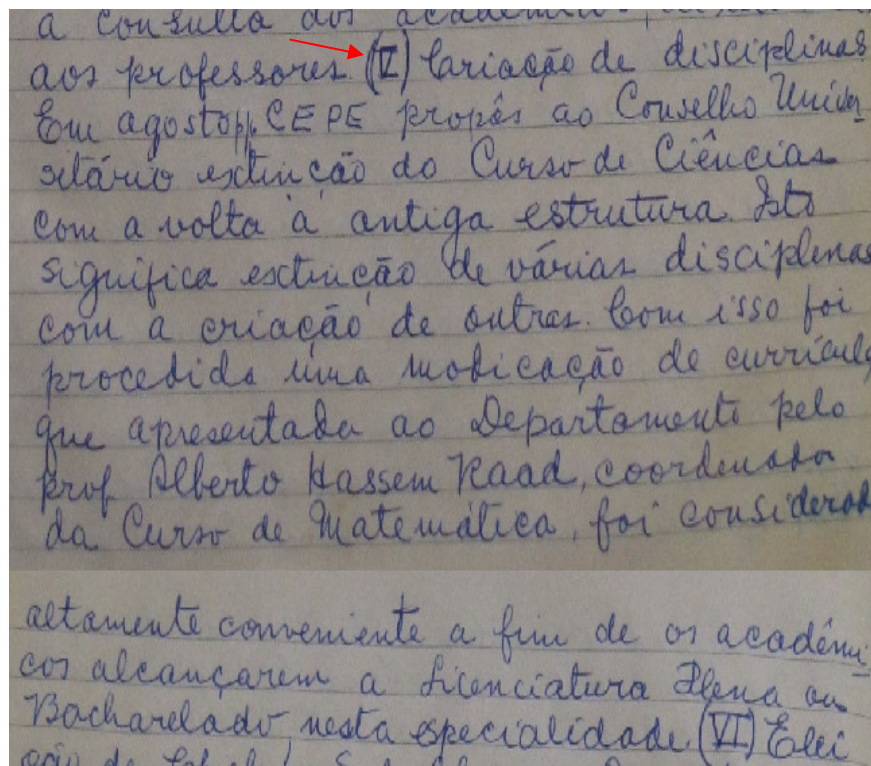 a consulta dos
aos professores (V) Criação de disciplinas
Em agosto pp, CEPE propôs ao Conselho Univer
sitário extinção do Curso de Ciências
com a volta à antiga estrutura. Isto
significa extinção de várias disciplinas
com a criação de outras. Com isso foi
procedida uma modicação de currículo
que apresentada ao Departamento pelo
prof Alberto Hassem Raad, coordenador
da Curso de Matemática, foi considerad
altamente conveniente a fim de os acadêmi
cos alcançarem a Licenciatura Plena ou
Bacharelado nesta especialidade. (VI) Elei